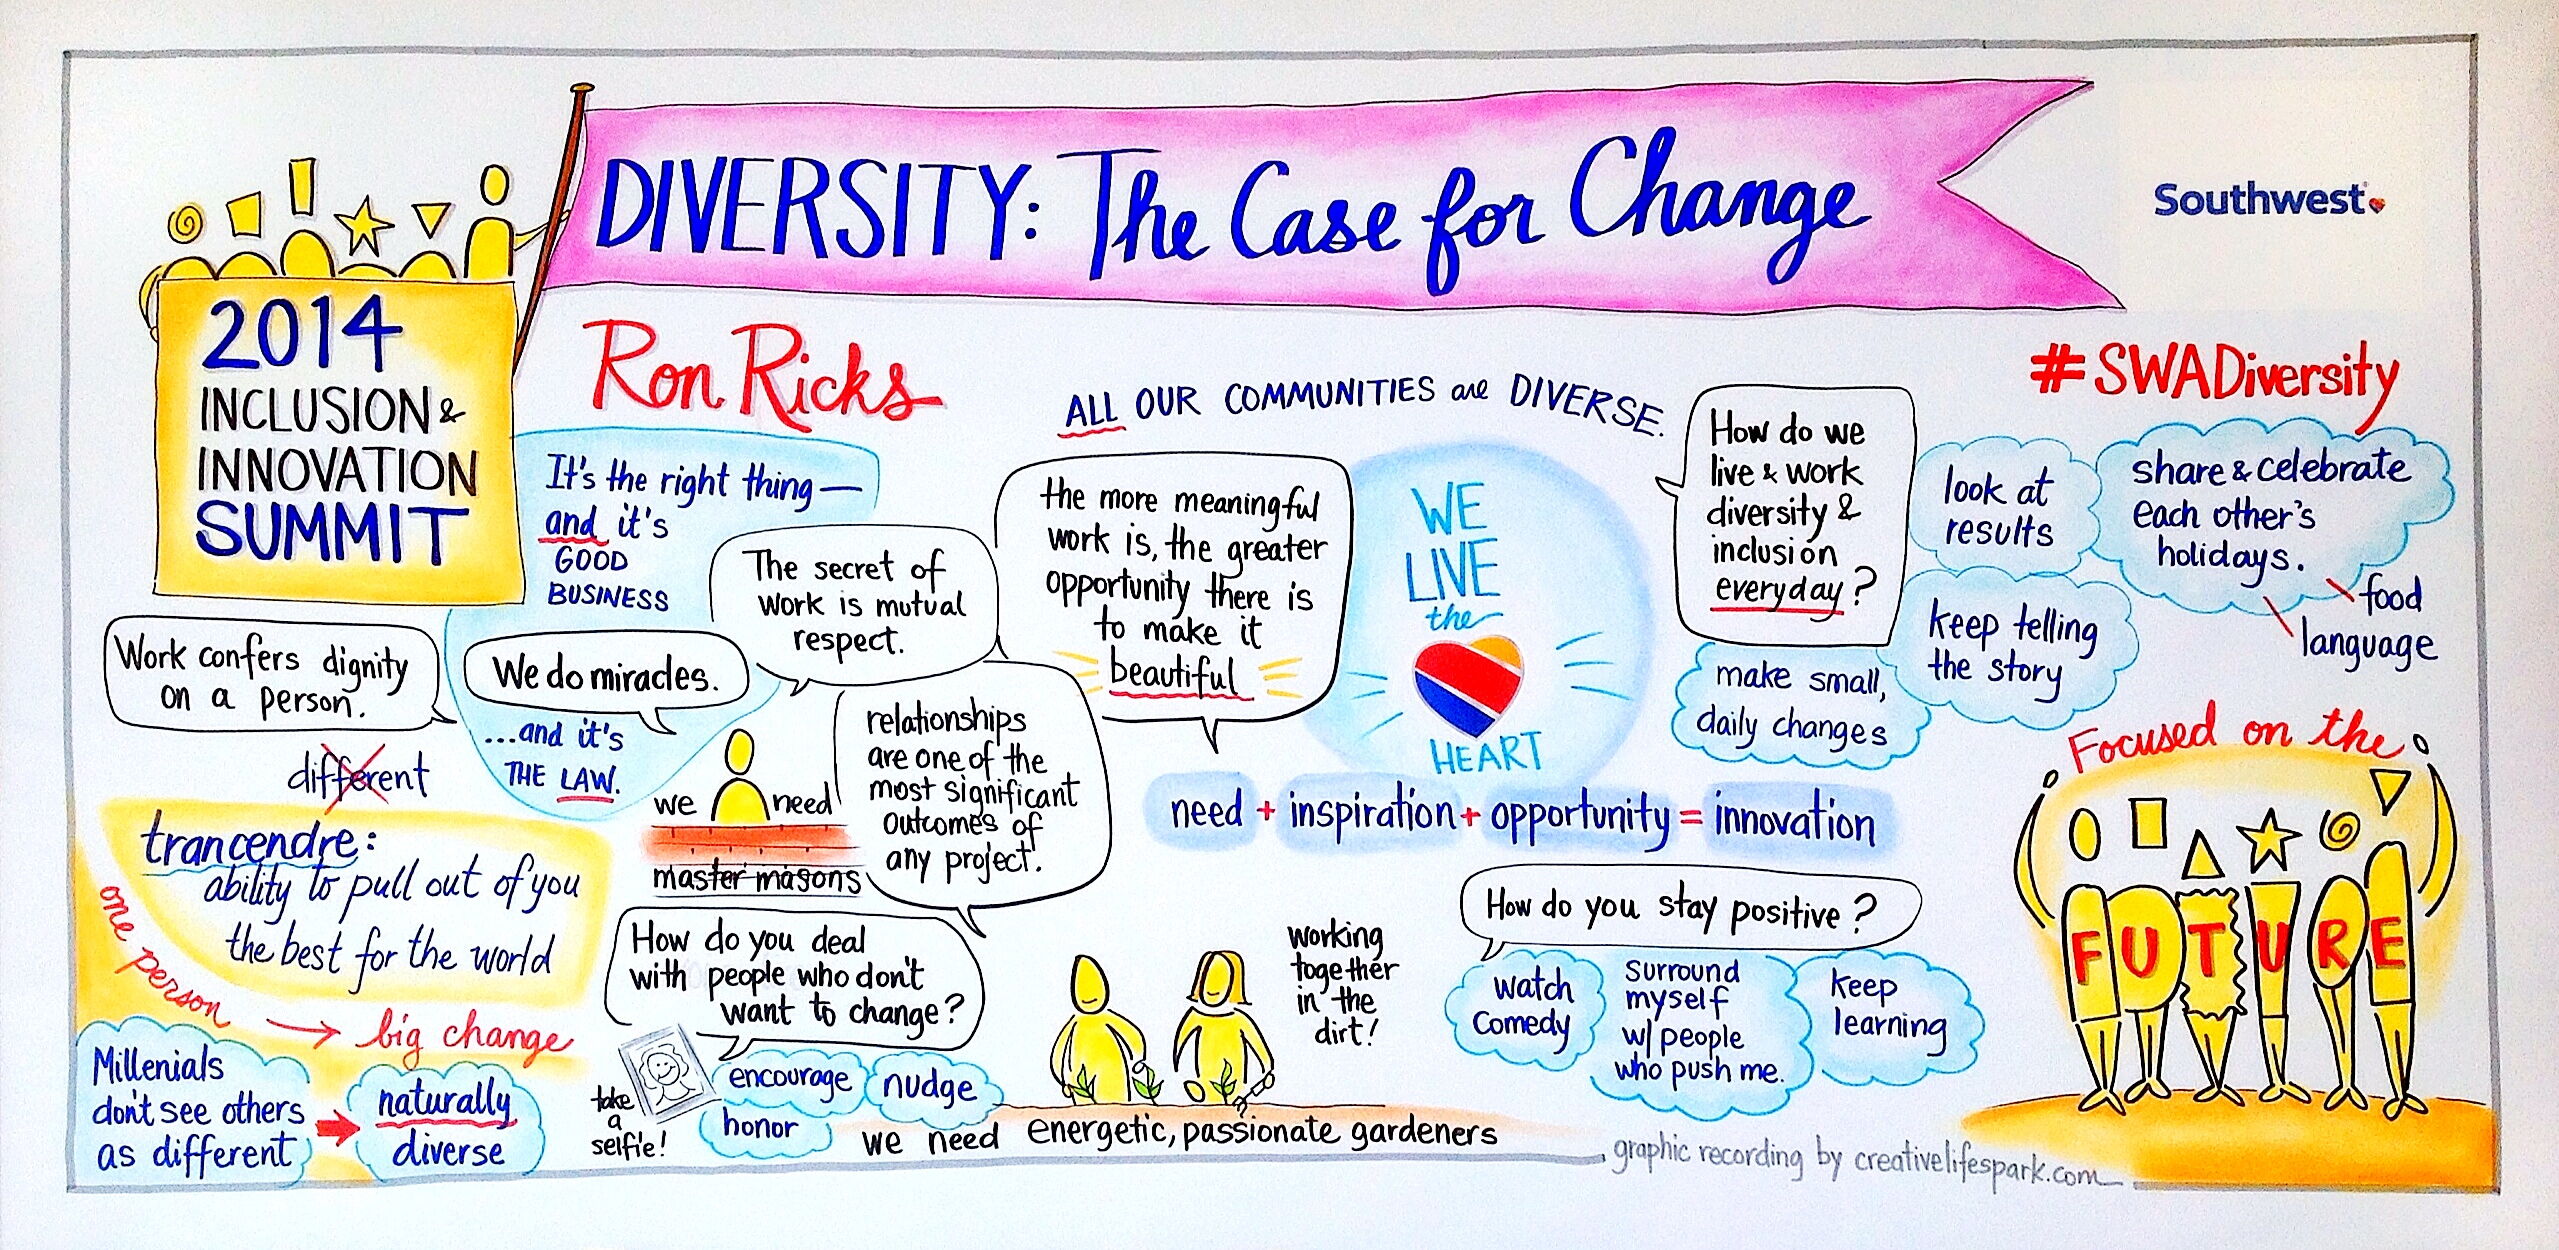 DIVERSITY: The Case for Change
Southwest
2014
INCLUSION &
INNOVATION
SUMMIT
Ron Ricks
#SWADiversity
It's the right thing—
and it's
GOOD
BUSINESS
...and it's
THE LAW.
Work confers dignity
on a person.
We do miracles.
The secret of
work is mutual
respect.
ALL OUR COMMUNITIES are DIVERSE.
the more meaningful
work is, the greater
opportunity there is
to make it
beautiful
WE
LIVE
the
HEART
How do we
live & work
diversity &
inclusion
everyday?
look at
results
share & celebrate
each other's
holidays.
food
language
keep telling
the story
make small,
daily changes
different
trancendre:
ability to pull out of you
the best for the world
one person
big change
Millenials
don't see others
as different
naturally
diverse
we need
master masons
relationships
are one of the
most significant
outcomes of
any project.
need + inspiration + opportunity = innovation
How do you deal
with people who don't
want to change?
take
a
selfie!
encourage
nudge
honor
working
together
in the
dirt!
we need energetic, passionate gardeners
How do you stay positive?
watch
comedy
surround
myself
w/ people
who push me.
keep
learning
Focused on the
FUTURE
graphic recording by creativelifespark.com